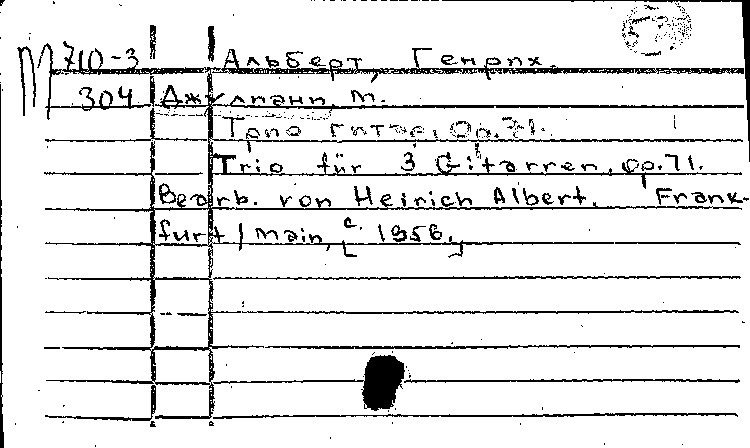 М 710-3 Альберт, Генрих.
304 Джулиани, М.
Трио гитар, Op.71.
Trio für 3 Gitarren, op.71.
Bearb. von Heirich Albert. Frank-
furt/Main, [c. 1956.]